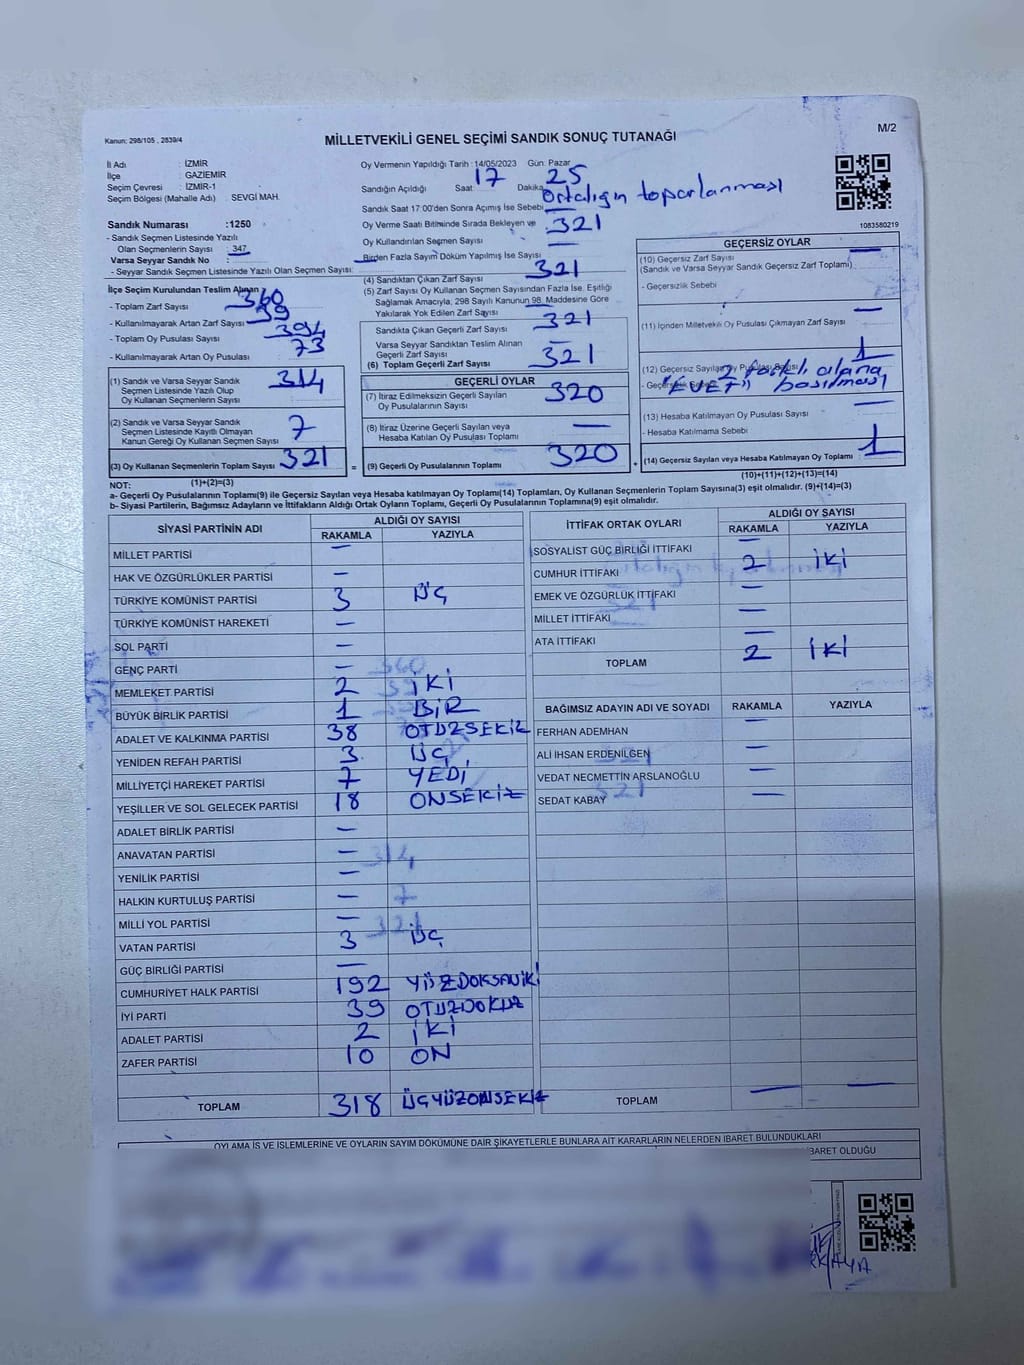 Kanun: 298/105 , 2839/4
MİLLETVEKİLİ GENEL SEÇİMİ SANDIK SONUÇ TUTANAĞI
M/2
İl Adı : İZMİR
İlçe : GAZİEMİR
Seçim Çevresi : İZMİR-1
Seçim Bölgesi (Mahalle Adı) : SEVGİ MAH.
Oy Vermenin Yapıldığı Tarih : 14/05/2023 Gün: Pazar
Sandığın Açıldığı Saat: 17 Dakika 25
Sandık Saat 17:00'den Sonra Açımış İse Sebebi Ortalığın toparlanması
Oy Verme Saati Bitiminde Sırada Bekleyen ve 321
Oy Kullandırılan Seçmen Sayısı —
Birden Fazla Sayım Döküm Yapılmış İse Sayısı —
1083580219
Sandık Numarası :1250
- Sandık Seçmen Listesinde Yazılı
Olan Seçmenlerin Sayısı : 347
Varsa Seyyar Sandık No :
- Seyyar Sandık Seçmen Listesinde Yazılı Olan Seçmen Sayısı:
İlçe Seçim Kurulundan Teslim Alınan
- Toplam Zarf Sayısı 360
- Kullanılmayarak Artan Zarf Sayısı 39
- Toplam Oy Pusulası Sayısı 394
- Kullanılmayarak Artan Oy Pusulası 73
(1) Sandık ve Varsa Seyyar Sandık
Seçmen Listesinde Yazılı Olup
Oy Kullanan Seçmenlerin Sayısı 314
(2) Sandık ve Varsa Seyyar Sandık
Seçmen Listesinde Kayıtlı Olmayan
Kanun Gereği Oy Kullanan Seçmen Sayısı 7
(3) Oy Kullanan Seçmenlerin Toplam Sayısı 321
(1)+(2)=(3)
(4) Sandıktan Çıkan Zarf Sayısı 321
(5) Zarf Sayısı Oy Kullanan Seçmen Sayısından Fazla İse, Eşitliği
Sağlamak Amacıyla, 298 Sayılı Kanunun 98. Maddesine Göre
Yakılarak Yok Edilen Zarf Sayısı —
Sandıkta Çıkan Geçerli Zarf Sayısı 321
Varsa Seyyar Sandıktan Teslim Alınan
Geçerli Zarf Sayısı —
(6) Toplam Geçerli Zarf Sayısı 321
GEÇERLİ OYLAR
(7) İtiraz Edilmeksizin Geçerli Sayılan
Oy Pusulalarının Sayısı 320
(8) İtiraz Üzerine Geçerli Sayılan veya
Hesaba Katılan Oy Pusulası Toplamı —
= (9) Geçerli Oy Pusulalarının Toplamı 320
GEÇERSİZ OYLAR
(10) Geçersiz Zarf Sayısı —
(Sandık ve Varsa Seyyar Sandık Geçersiz Zarf Toplamı)
- Geçersizlik Sebebi
(11) İçinden Milletvekili Oy Pusulası Çıkmayan Zarf Sayısı —
(12) Geçersiz Sayılan Oy Pusulası Sayısı 1
- Geçersizlik Sebebi 2 farklı alana
"EVET" basılması
(13) Hesaba Katılmayan Oy Pusulası Sayısı —
- Hesaba Katılmama Sebebi
+ (14) Geçersiz Sayılan veya Hesaba Katılmayan Oy Toplamı 1
(10)+(11)+(12)+(13)=(14)
NOT:
a- Geçerli Oy Pusulalarının Toplamı(9) ile Geçersiz Sayılan veya Hesaba katılmayan Oy Toplamı(14) Toplamları, Oy Kullanan Seçmenlerin Toplam Sayısına(3) eşit olmalıdır. (9)+(14)=(3)
b- Siyasi Partilerin, Bağımsız Adayların ve İttifakların Aldığı Ortak Oyların Toplamı, Geçerli Oy Pusulalarının Toplamına(9) eşit olmalıdır.
SİYASİ PARTİNİN ADI ALDIĞI OY SAYISI
RAKAMLA YAZIYLA
MİLLET PARTİSİ —
HAK VE ÖZGÜRLÜKLER PARTİSİ —
TÜRKİYE KOMÜNİST PARTİSİ 3 ÜÇ
TÜRKİYE KOMÜNİST HAREKETİ —
SOL PARTİ —
GENÇ PARTİ —
MEMLEKET PARTİSİ 2 İKİ
BÜYÜK BİRLİK PARTİSİ 1 BİR
ADALET VE KALKINMA PARTİSİ 38 OTUZSEKİZ
YENİDEN REFAH PARTİSİ 3 ÜÇ
MİLLİYETÇİ HAREKET PARTİSİ 7 YEDİ
YEŞİLLER VE SOL GELECEK PARTİSİ 18 ONSEKİZ
ADALET BİRLİK PARTİSİ —
ANAVATAN PARTİSİ —
YENİLİK PARTİSİ —
HALKIN KURTULUŞ PARTİSİ —
MİLLİ YOL PARTİSİ —
VATAN PARTİSİ 3 ÜÇ
GÜÇ BİRLİĞİ PARTİSİ —
CUMHURİYET HALK PARTİSİ 192 YÜZDOKSANİKİ
İYİ PARTİ 39 OTUZDOKUZ
ADALET PARTİSİ 2 İKİ
ZAFER PARTİSİ 10 ON
TOPLAM 318 ÜÇYÜZONSEKİZ
İTTİFAK ORTAK OYLARI ALDIĞI OY SAYISI
RAKAMLA YAZIYLA
SOSYALİST GÜÇ BİRLİĞİ İTTİFAKI —
CUMHUR İTTİFAKI 2 İKİ
EMEK VE ÖZGÜRLÜK İTTİFAKI —
MİLLET İTTİFAKI —
ATA İTTİFAKI —
TOPLAM 2 İKİ
BAĞIMSIZ ADAYIN ADI VE SOYADI RAKAMLA YAZIYLA
FERHAN ADEMHAN —
ALİ İHSAN ERDENİLGEN —
VEDAT NECMETTİN ARSLANOĞLU —
SEDAT KABAY —
TOPLAM — —
OYLAMA İŞ VE İŞLEMLERİNE VE OYLARIN SAYIM DÖKÜMÜNE DAİR ŞİKAYETLERLE BUNLARA AİT KARARLARIN NELERDEN İBARET BULUNDUKLARI
İBARET OLDUĞU